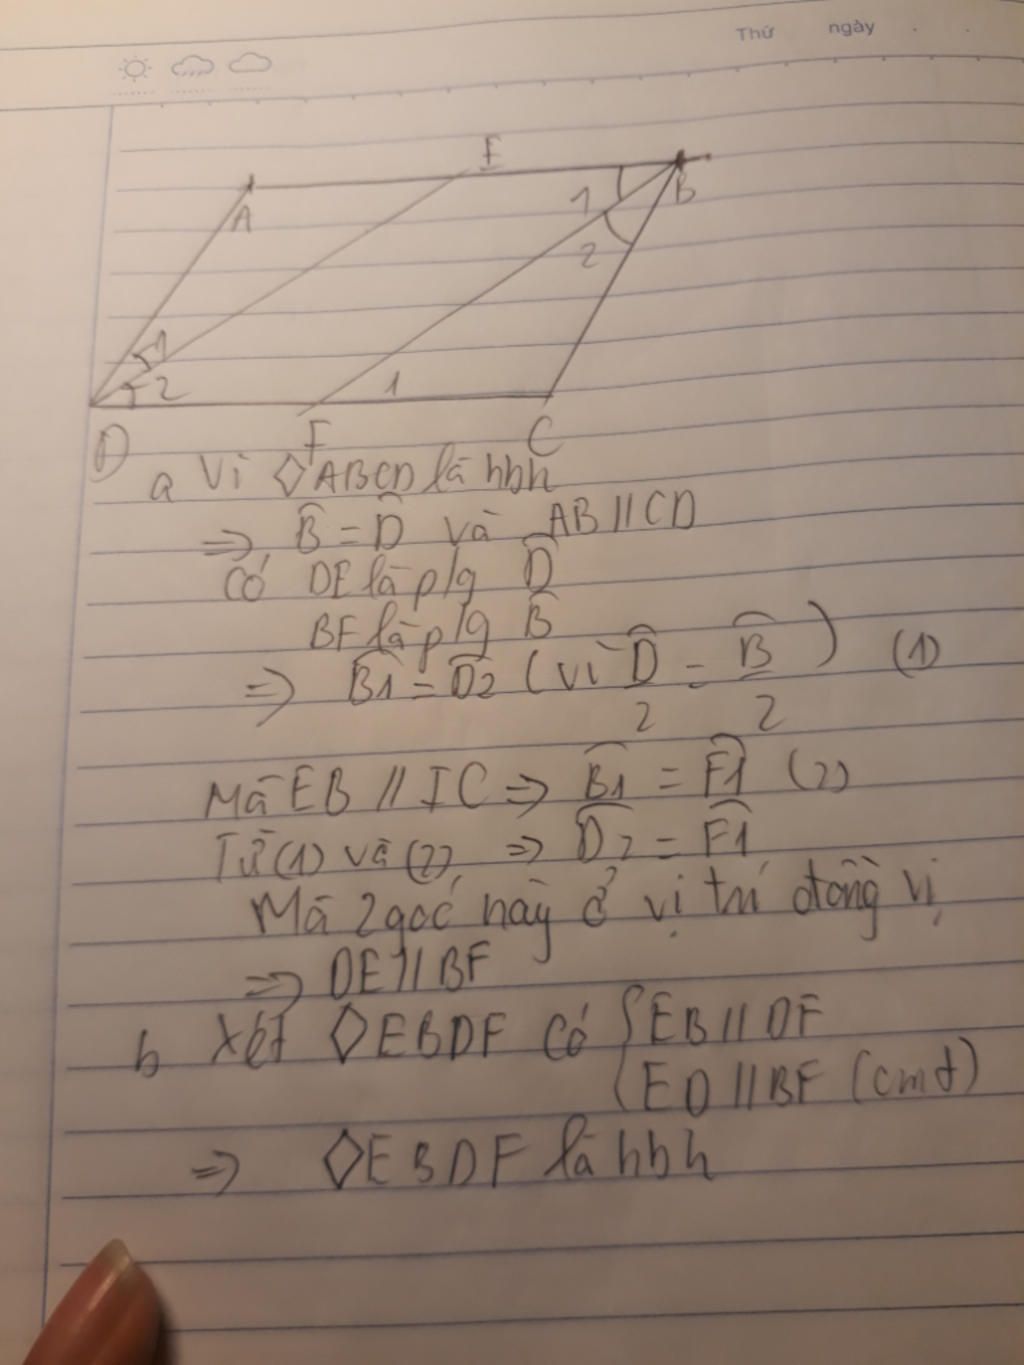 Thứ ngày
E
A
B
1
2
1
2
1
D
F
C
a Vì ◇ABCD là hbh
=> B̂ = D̂ và AB // CD
Có DE là p/g D̂
BF là p/g B̂
=> B̂1 = D̂2 (vì D̂/2 = B̂/2) (1)
Mà EB // IC => B̂1 = F̂1 (2)
Từ (1) và (2) => D̂2 = F̂1
Mà 2 góc này ở vị trí đồng vị
=> DE // BF
b Xét ◇EBDF có { EB // DF
ED // BF (cmt)
=> ◇EBDF là hbh